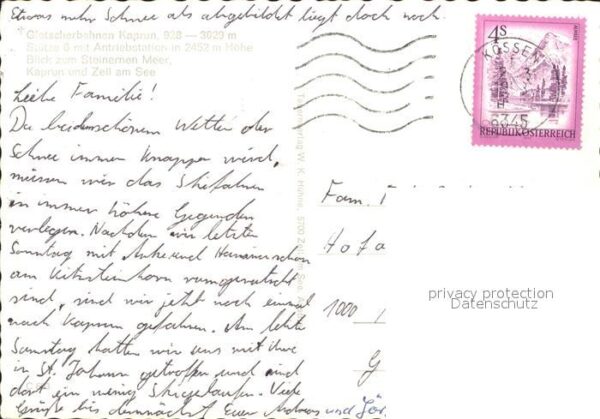 Etwas mehr Schnee als abgebildet liegt doch noch.
Gletscherbahnen Kaprun, 928 — 3029 m
Stütze 6 mit Antriebstation in 2452 m Höhe
Blick zum Steinernen Meer,
Kaprun und Zell am See
Liebe Familie!
Da bei den schönem Wetter der
Schnee immer knapper wird,
müssen wir das Skifahren
in immer höhere Gegenden
verlegen. Nachdem wir letzten
Sonntag mit Anke und
am Kitzsteinhorn rumgerutscht
sind, sind wir jetzt noch einmal
nach Kaprun gefahren. Am letzten
Samstag hatten wir uns mit ihr
in St. Johann getroffen und sind
dort ein wenig Skigelaufen. Viele
Grüße bis demnächst Euer Andreas und Jör
W. K. Mühne, 5700 Zell am See
4S
REPUBLIK ÖSTERREICH
KÖSSEN
6345
Fam.
Hofa
1000
G
privacy protection
Datenschutz